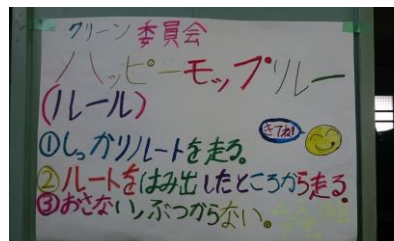 グリーン委員会
ハッピーモップリレー
(ルール)
きてね!
①しっかりルートを走る。
②ルートをはみ出したところから走る。
③おさない、ぶつからない。